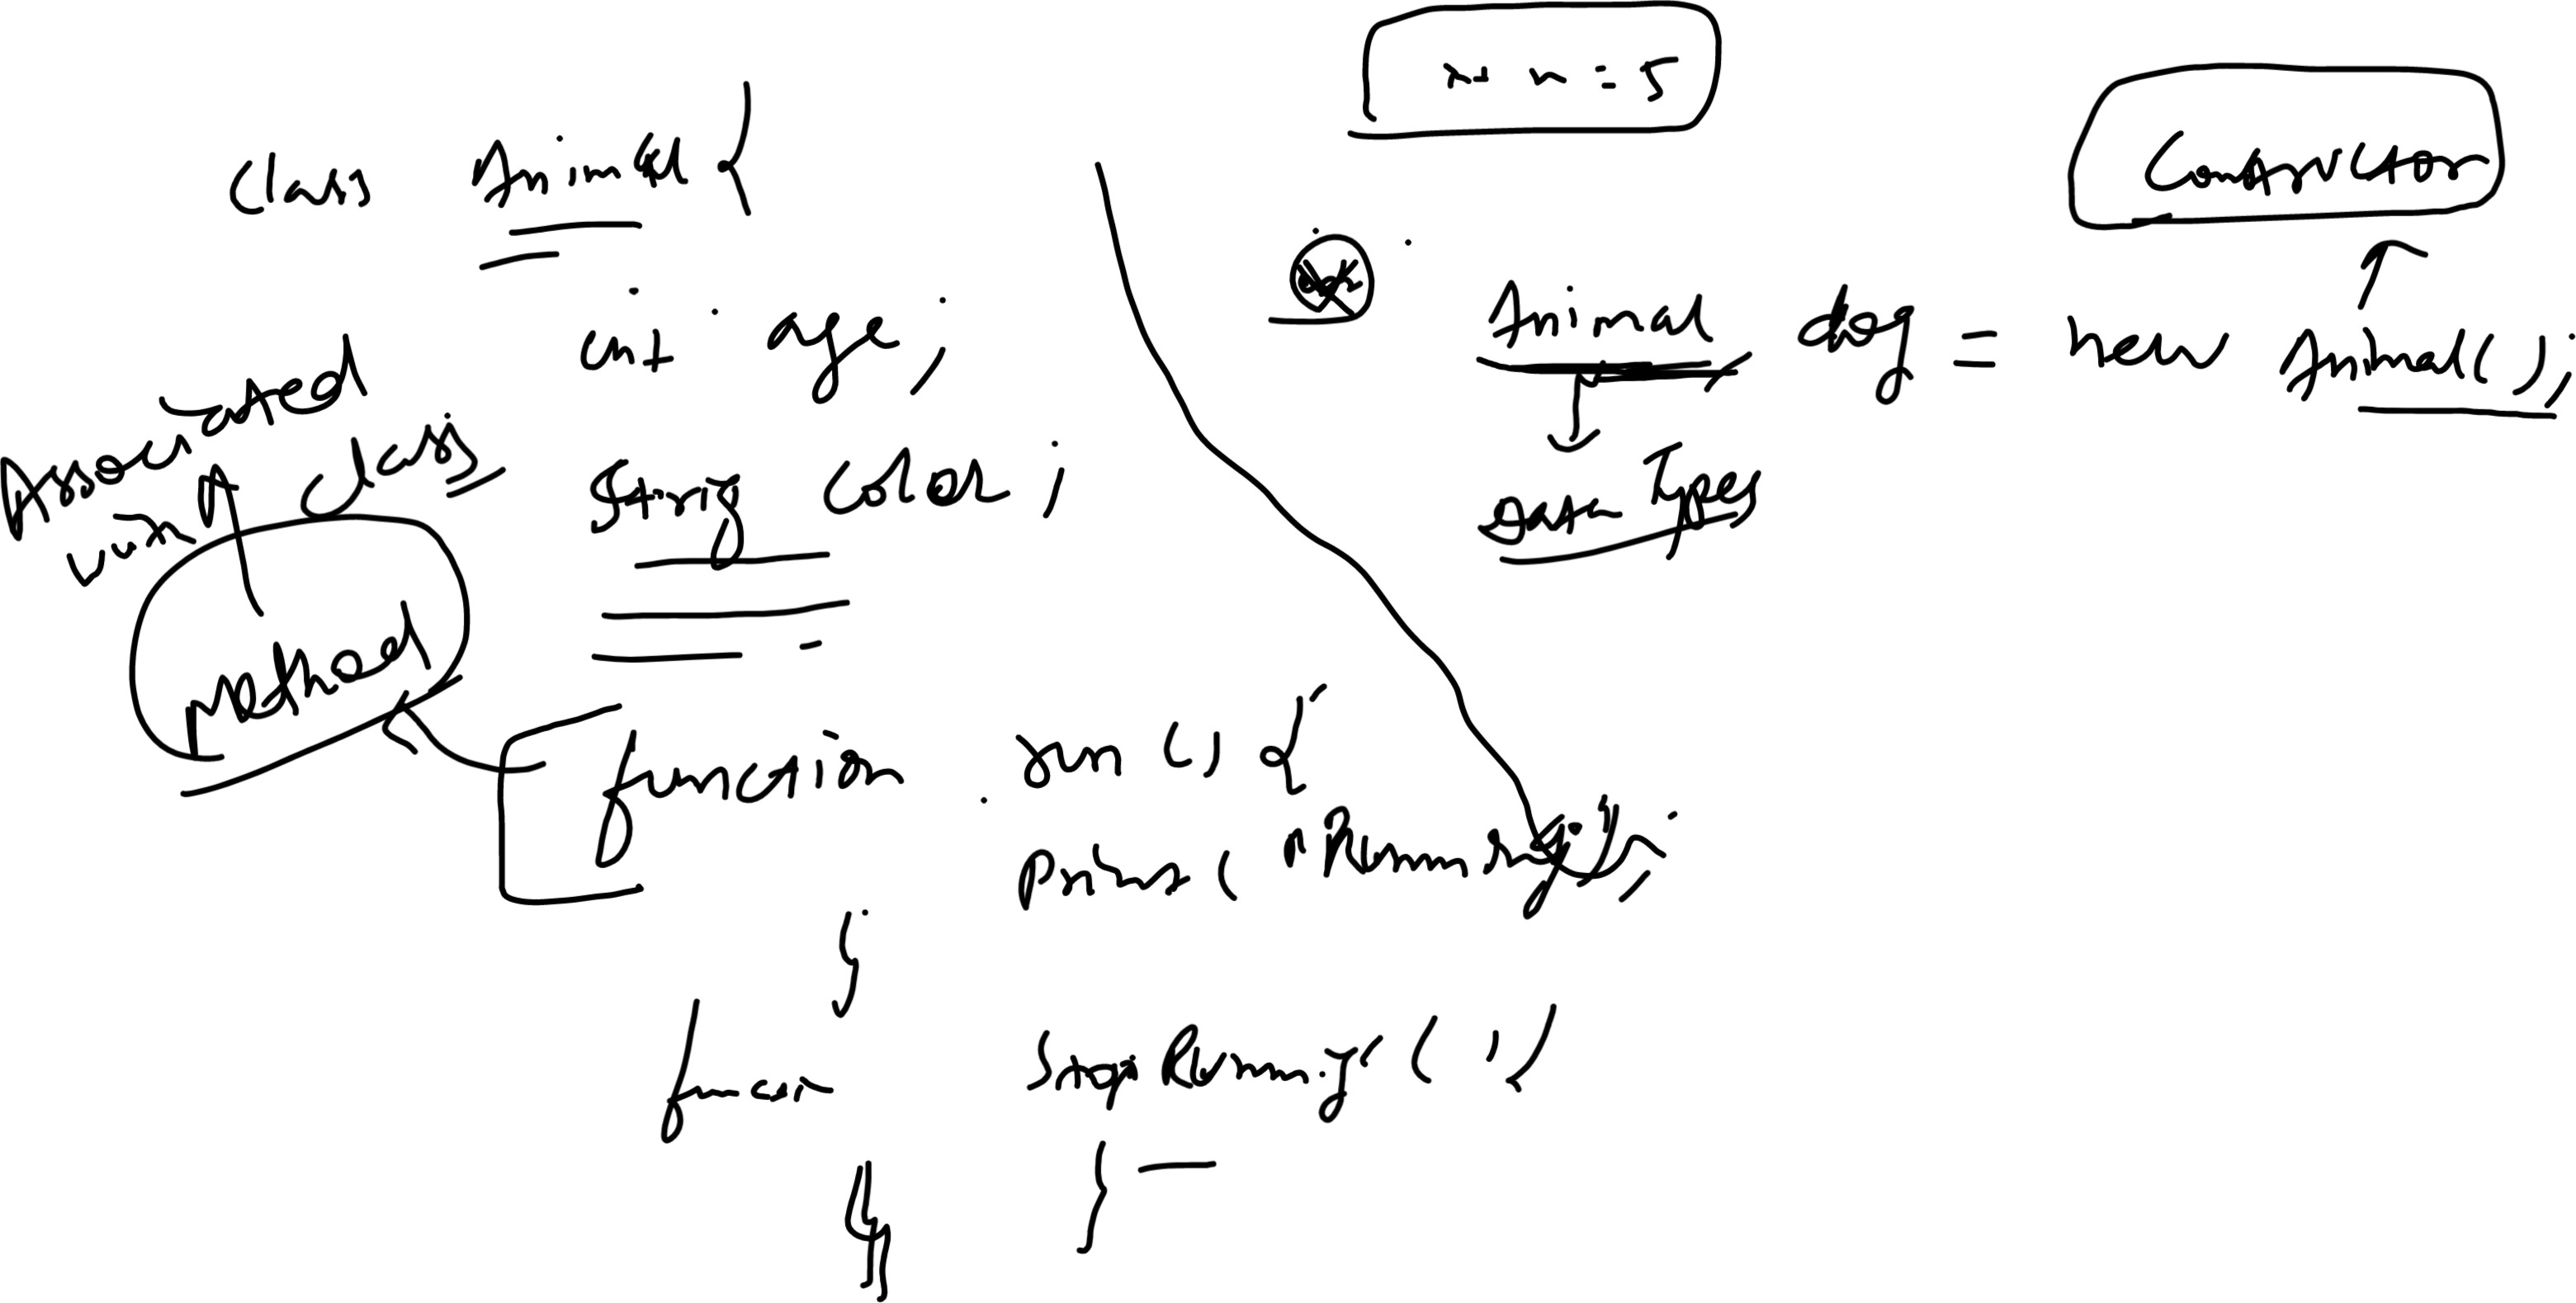 class Animal {
int age;
String color;
Associated
with class
method
function run () {
Print ( "Running");
}
StopRunning ( )
}
n = 5
Constructor
Animal dog = new Animal();
Data Types